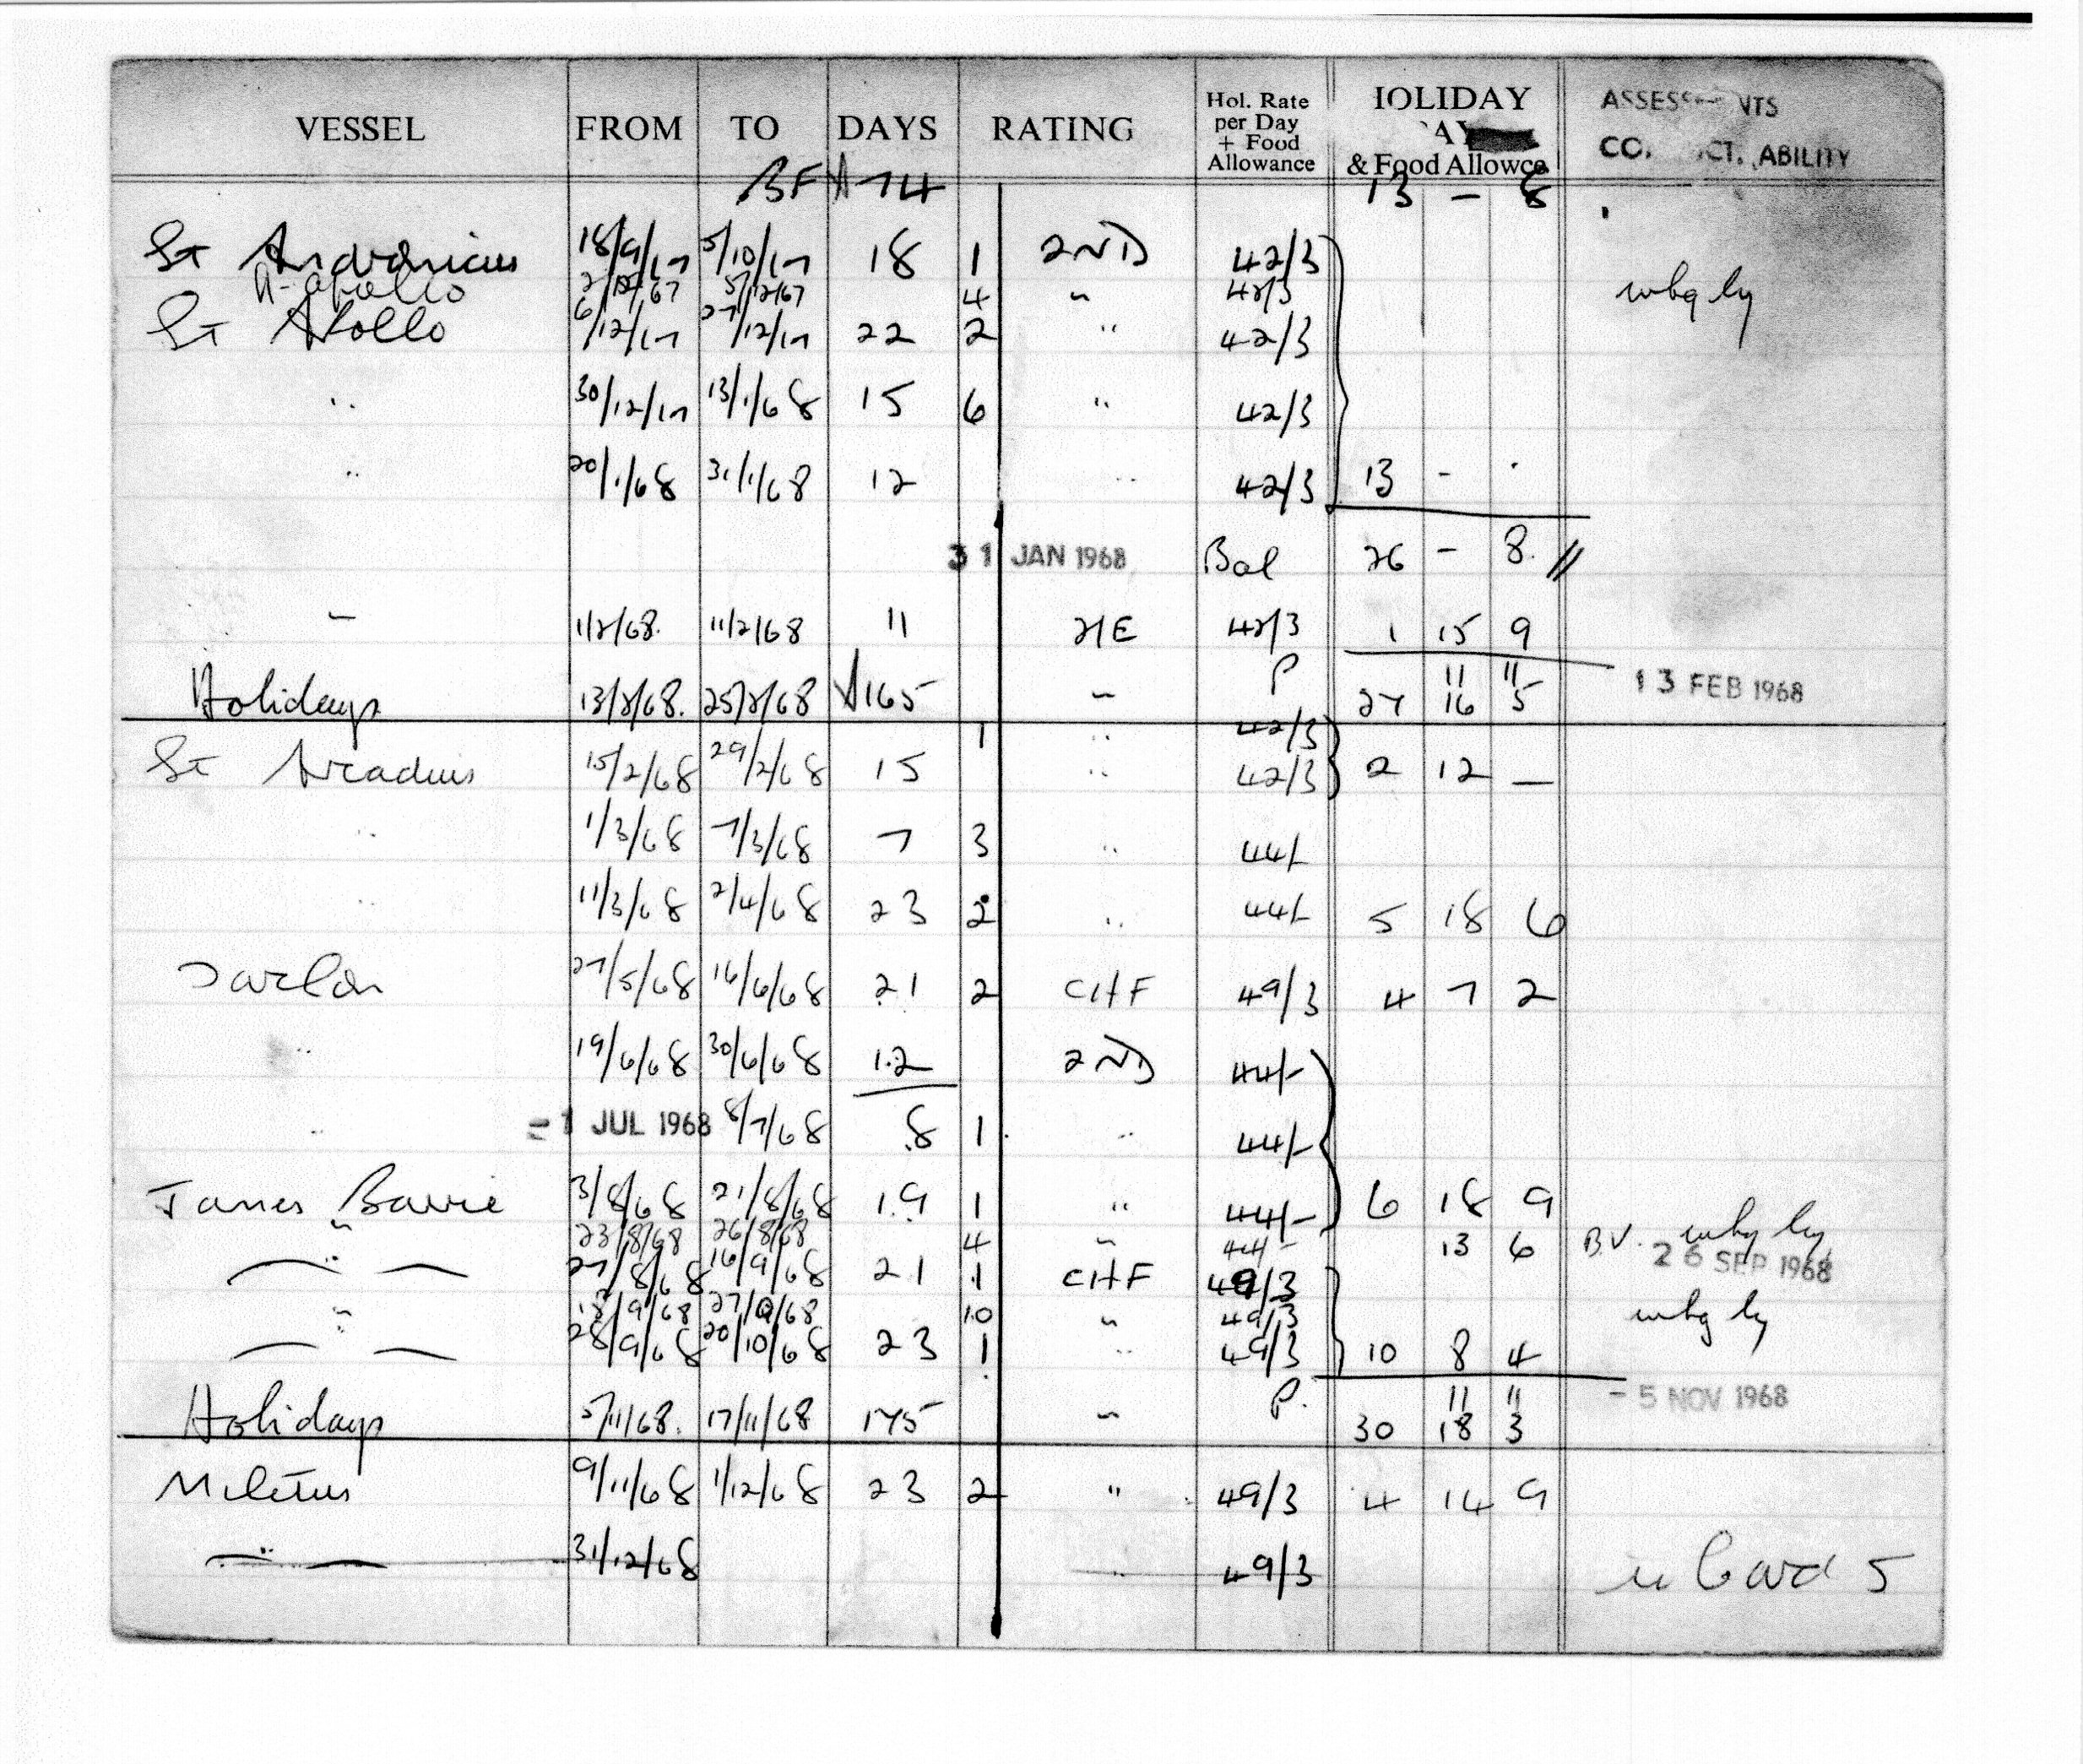 VESSEL FROM TO DAYS RATING Hol. Rate per Day + Food Allowance IOLIDAY AY & Food Allowce ASSESS NTS CO CT. ABILITY
BF 74 13 - 8
St Andronicus 18/9/67 5/10/67 18 1 2ND 42/3
St Apollo 2/12/67 5/12/67 4 " 42/3 whg ly
St Apollo 6/12/67 27/12/67 22 2 " 42/3
" 30/12/67 13/1/68 15 6 " 42/3
" 20/1/68 31/1/68 12 " 42/3 13 - -
31 JAN 1968 Bal 26 - 8 //
" 1/2/68. 11/2/68 11 2/E 42/3 1 15 9
Holidays 13/2/68. 25/2/68 165 " P 11 11 13 FEB 1968
27 16 5
1 " 42/3
St Arcadius 15/2/68 29/2/68 15 " 42/3 2 12 —
" 1/3/68 7/3/68 7 3 " 44/-
" 11/3/68 2/4/68 23 2 " 44/- 5 18 6
Tarlon 27/5/68 16/6/68 21 2 CHF 49/3 4 7 2
" 19/6/68 30/6/68 12 2ND 44/-
" - 1 JUL 1968 8/7/68 8 1 " 44/-
James Barrie 3/8/68 21/8/68 19 1 " 44/- 6 18 9
" 23/8/68 26/8/68 4 " 44/- 13 6 B.V. whg ly
" 27/8/68 16/9/68 21 1 CHF 49/3 26 SEP 1968
" 18/9/68 27/9/68 10 " 49/3 whg ly
" 28/9/68 20/10/68 23 1 " 49/3 10 8 4
Holidays 5/11/68. 17/11/68 175 " P. 11 11 - 5 NOV 1968
30 18 3
Miletus 9/11/68 1/12/68 23 2 " 49/3 4 14 9
" 31/12/68 " 49/3 Card 5